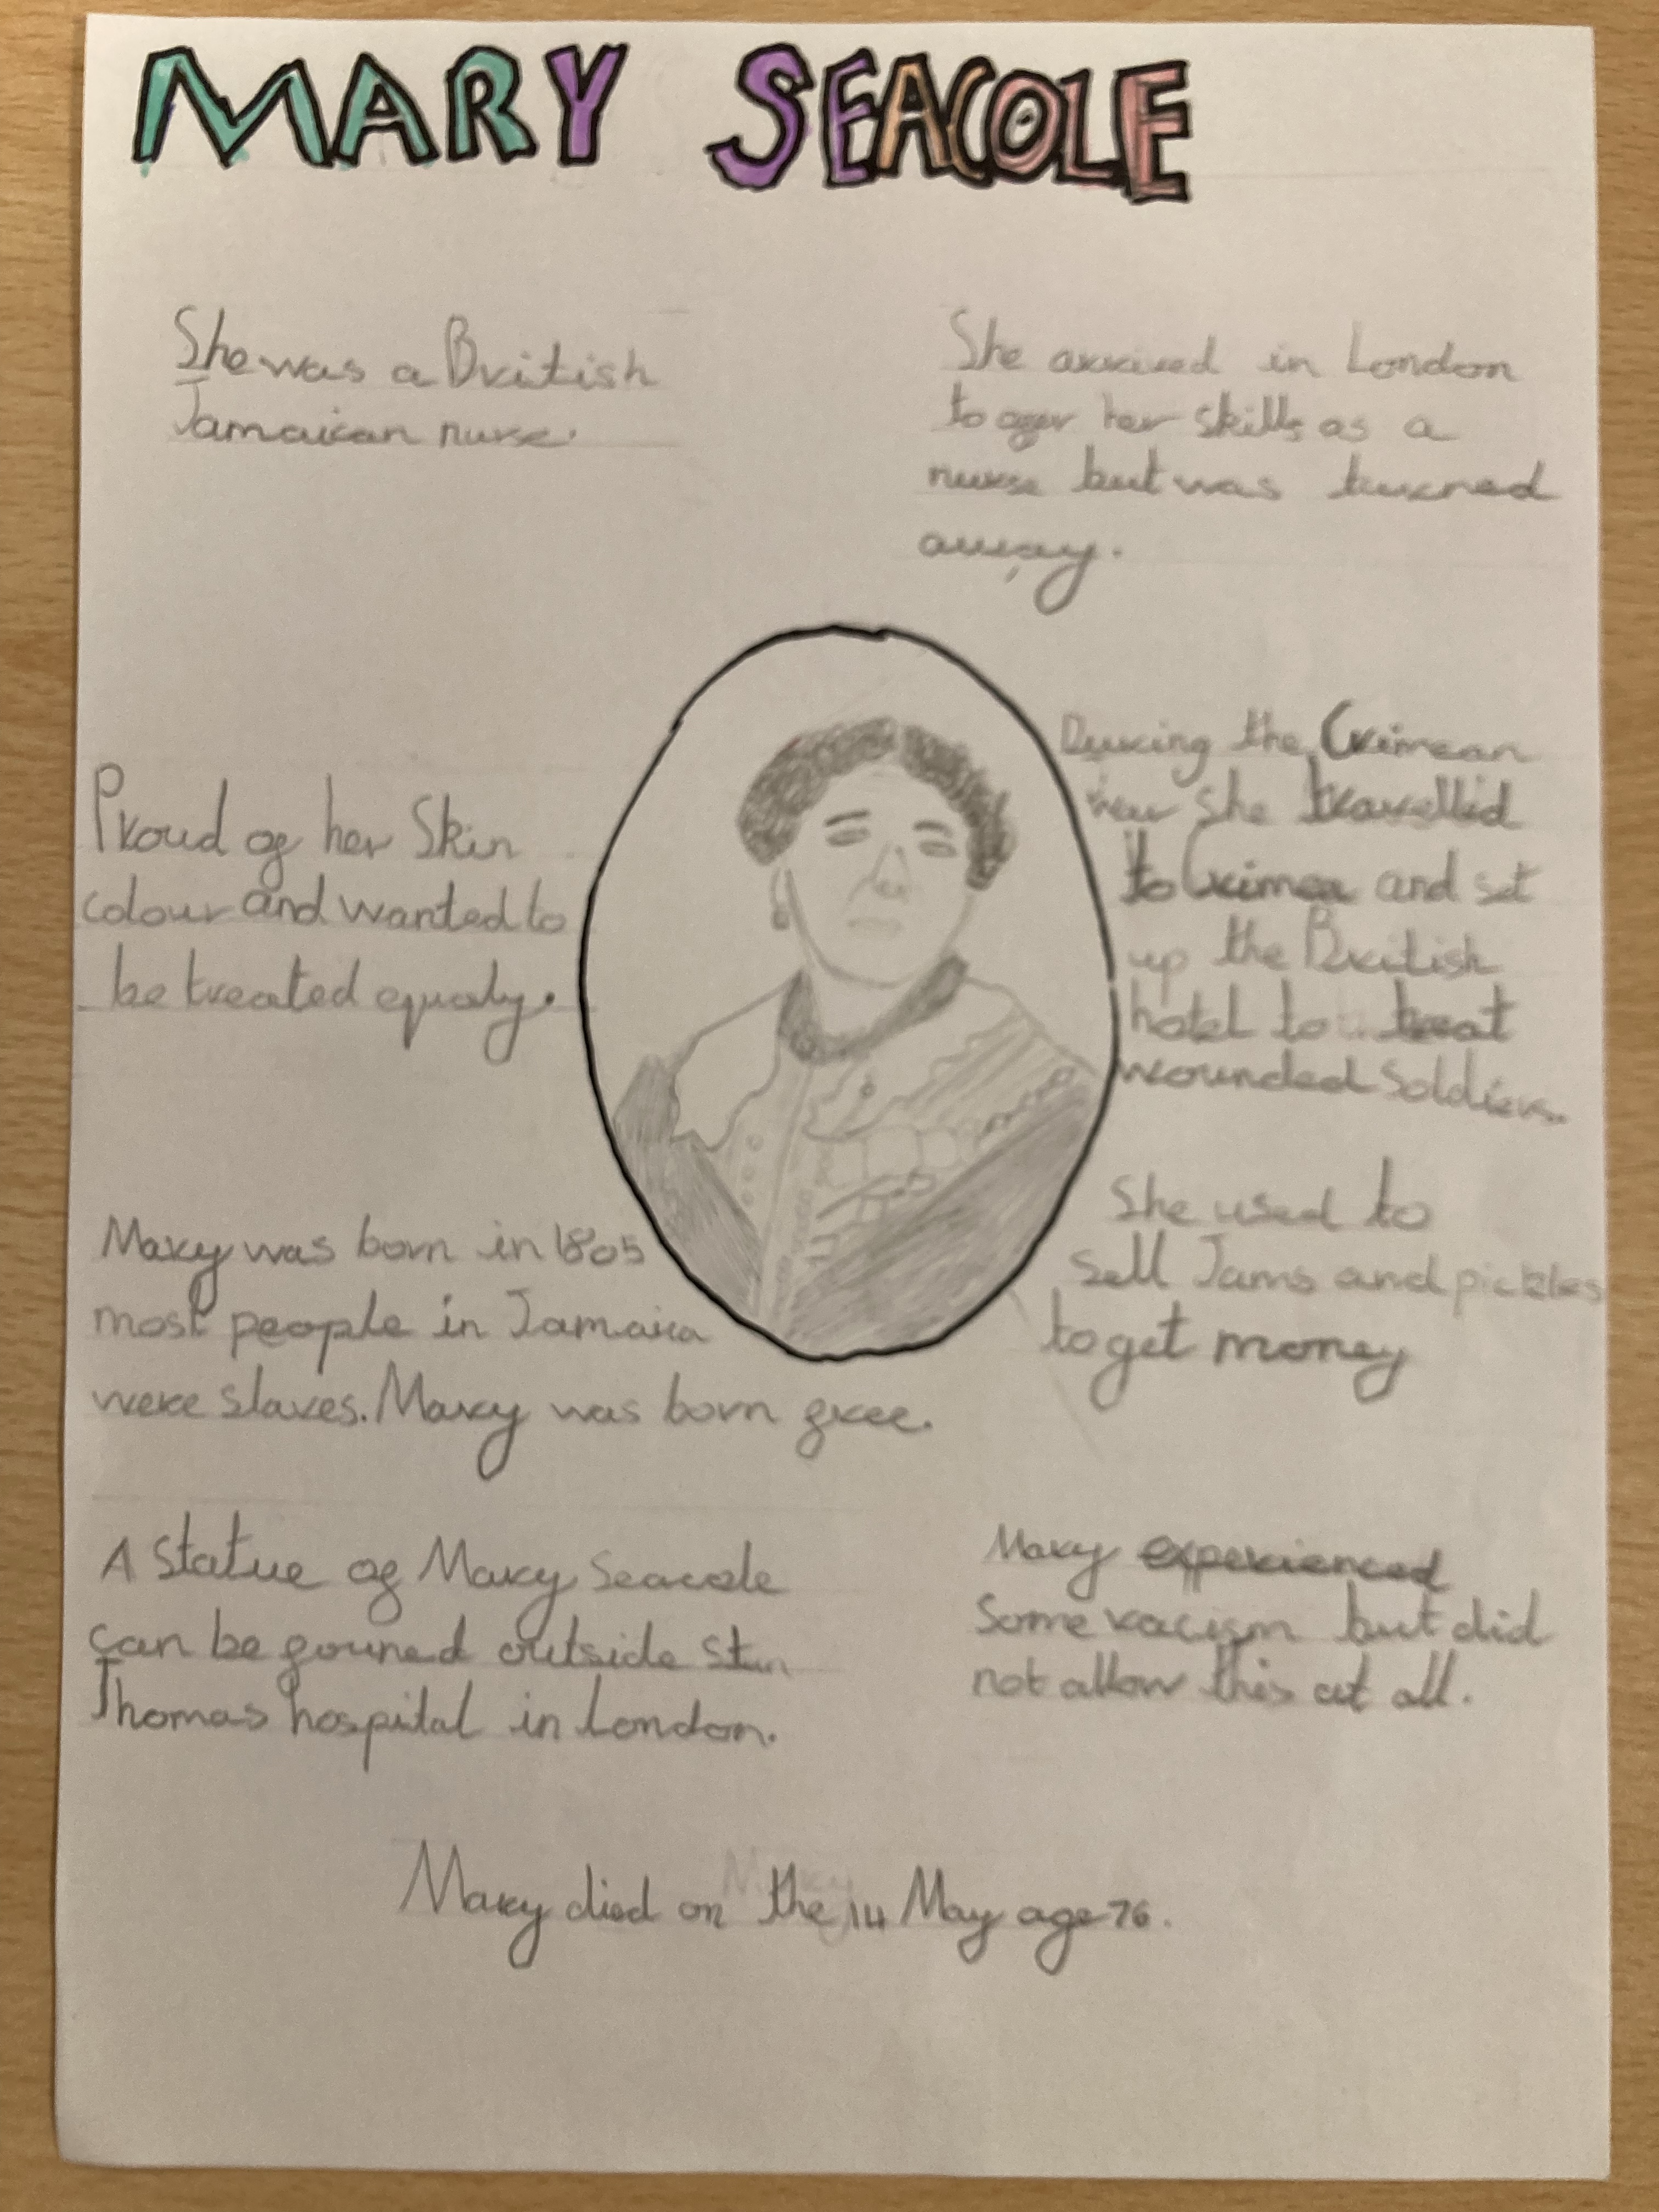 MARY SEACOLE
She was a British
Jamaican nurse.
She arrived in London
to offer her skills as a
nurse but was turned
away.
Proud of her Skin
colour and wanted to
be treated equaly.
During the Crimean
war she travelled
to Crimea and set
up the British
hotel to treat
wounded Soldiers.
Mary was born in 1805
most people in Jamaica
were slaves. Mary was born free.
She used to
sell Jams and pickles
to get money
A Statue of Mary Seacole
can be founed outside
Thomas hospital in London.
Mary experienced
Some racism but did
not allow this at all.
Mary died on the 14 May age 76.